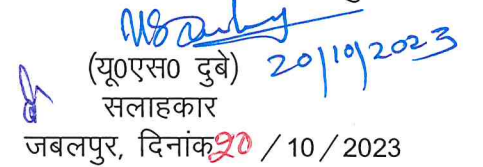 20/10/2023
(यू0एस0 दुबे)
सलाहकार
जबलपुर, दिनांक 20 / 10 / 2023